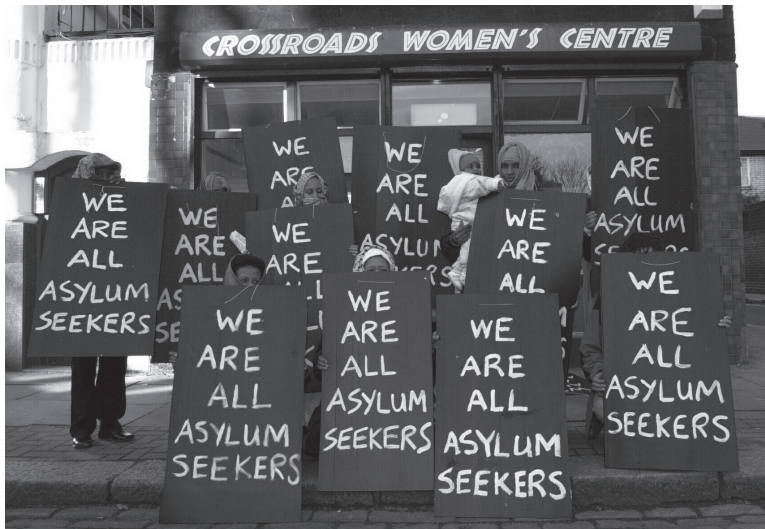 CROSSROADS WOMEN'S CENTRE
WE
ARE
ALL
ASYLUM
SEEKERS
WE
ARE
ALL
WE
ARE
WE
ARE
ALL
WE
ARE
ALL
ASYLUM
SEEKERS
WE
ARE
ALL
WE
ARE
ALL
ASYLUM
WE
ARE
ALL
ASYLUM
SEEKERS
WE
ARE
ALL
ASYLUM
SEEKERS
WE
ARE
ALL
ASYLUM
SEEKERS
WE
ARE
ALL
ASYLUM
SEEKERS